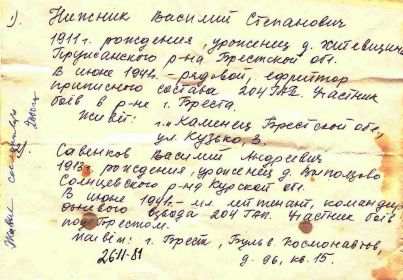 1). Нижник Василий Степанович
1911 г. рождения, уроженец д. Хитевщина
Пружанского р-на Брестской обл.
В июне 1941г. - рядовой, ефрейтор
приписного состава 204 ГАП. Участник
боёв в р-не г. Бреста.
Живёт: г.п. Каменец Брестской обл.,
ул. Кузько, 3.
Савенков Василий Андреевич
1913 г. рождения, уроженец д. Выползово
Солнцевского р-на Курской обл.
В июне 1941г. - мл. лейтенант, командир
огневого взвода 204 ГАП. Участник боёв
под Брестом.
Живёт: г. Брест, Бульв. Космонавтов,
д. 96, кв. 15.
26-11-81